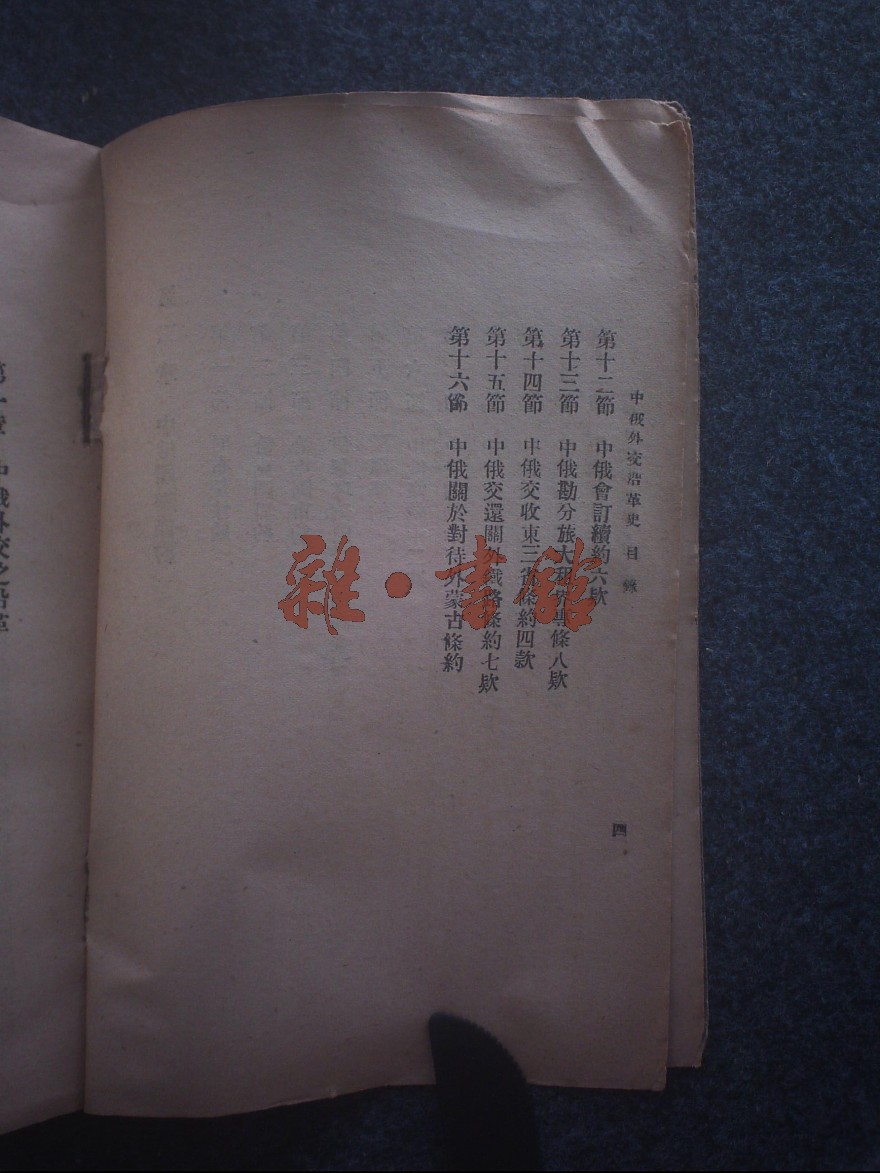 中俄外交沿革史 目錄
第十二節 中俄會訂續約六款
第十三節 中俄勘分旅大租界專條八款
第十四節 中俄交收東三省條約四款
第十五節 中俄交還關外鐵路條約七款
第十六節 中俄關於對待外蒙古條約
四
中俄外交之沿革
雜·書館